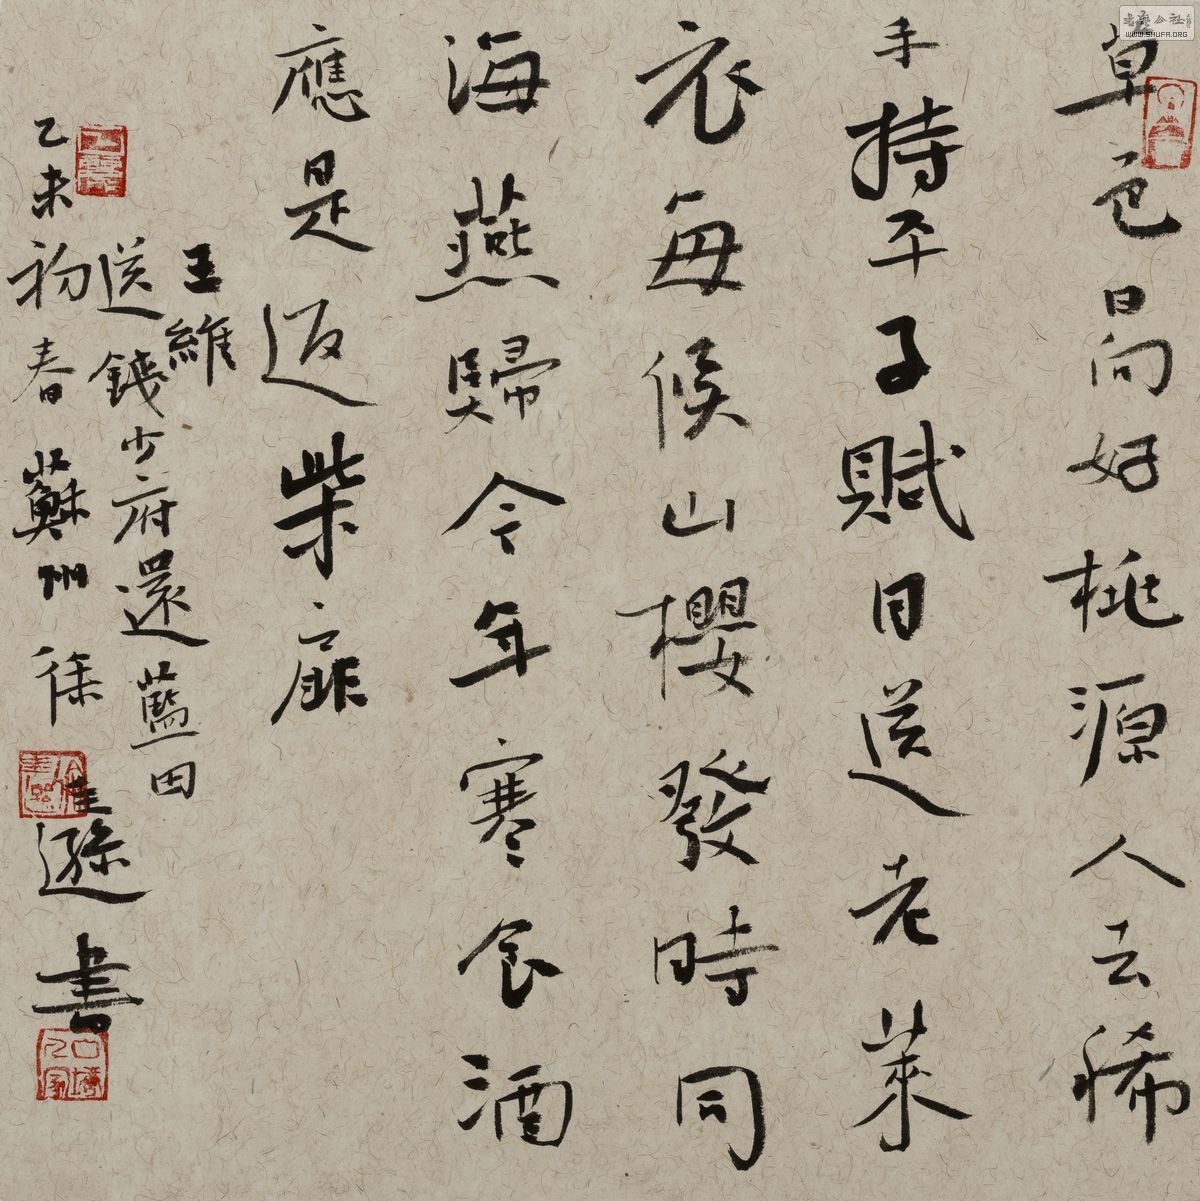 草色日向好桃源人去稀
手持平子賦目送老萊
衣每候山櫻發時同
海燕歸今年寒食酒
應是返柴扉
王維
送錢少府還藍田
乙未初春蘇州徐遜書
書藝公社
WWW.SHUFA.ORG